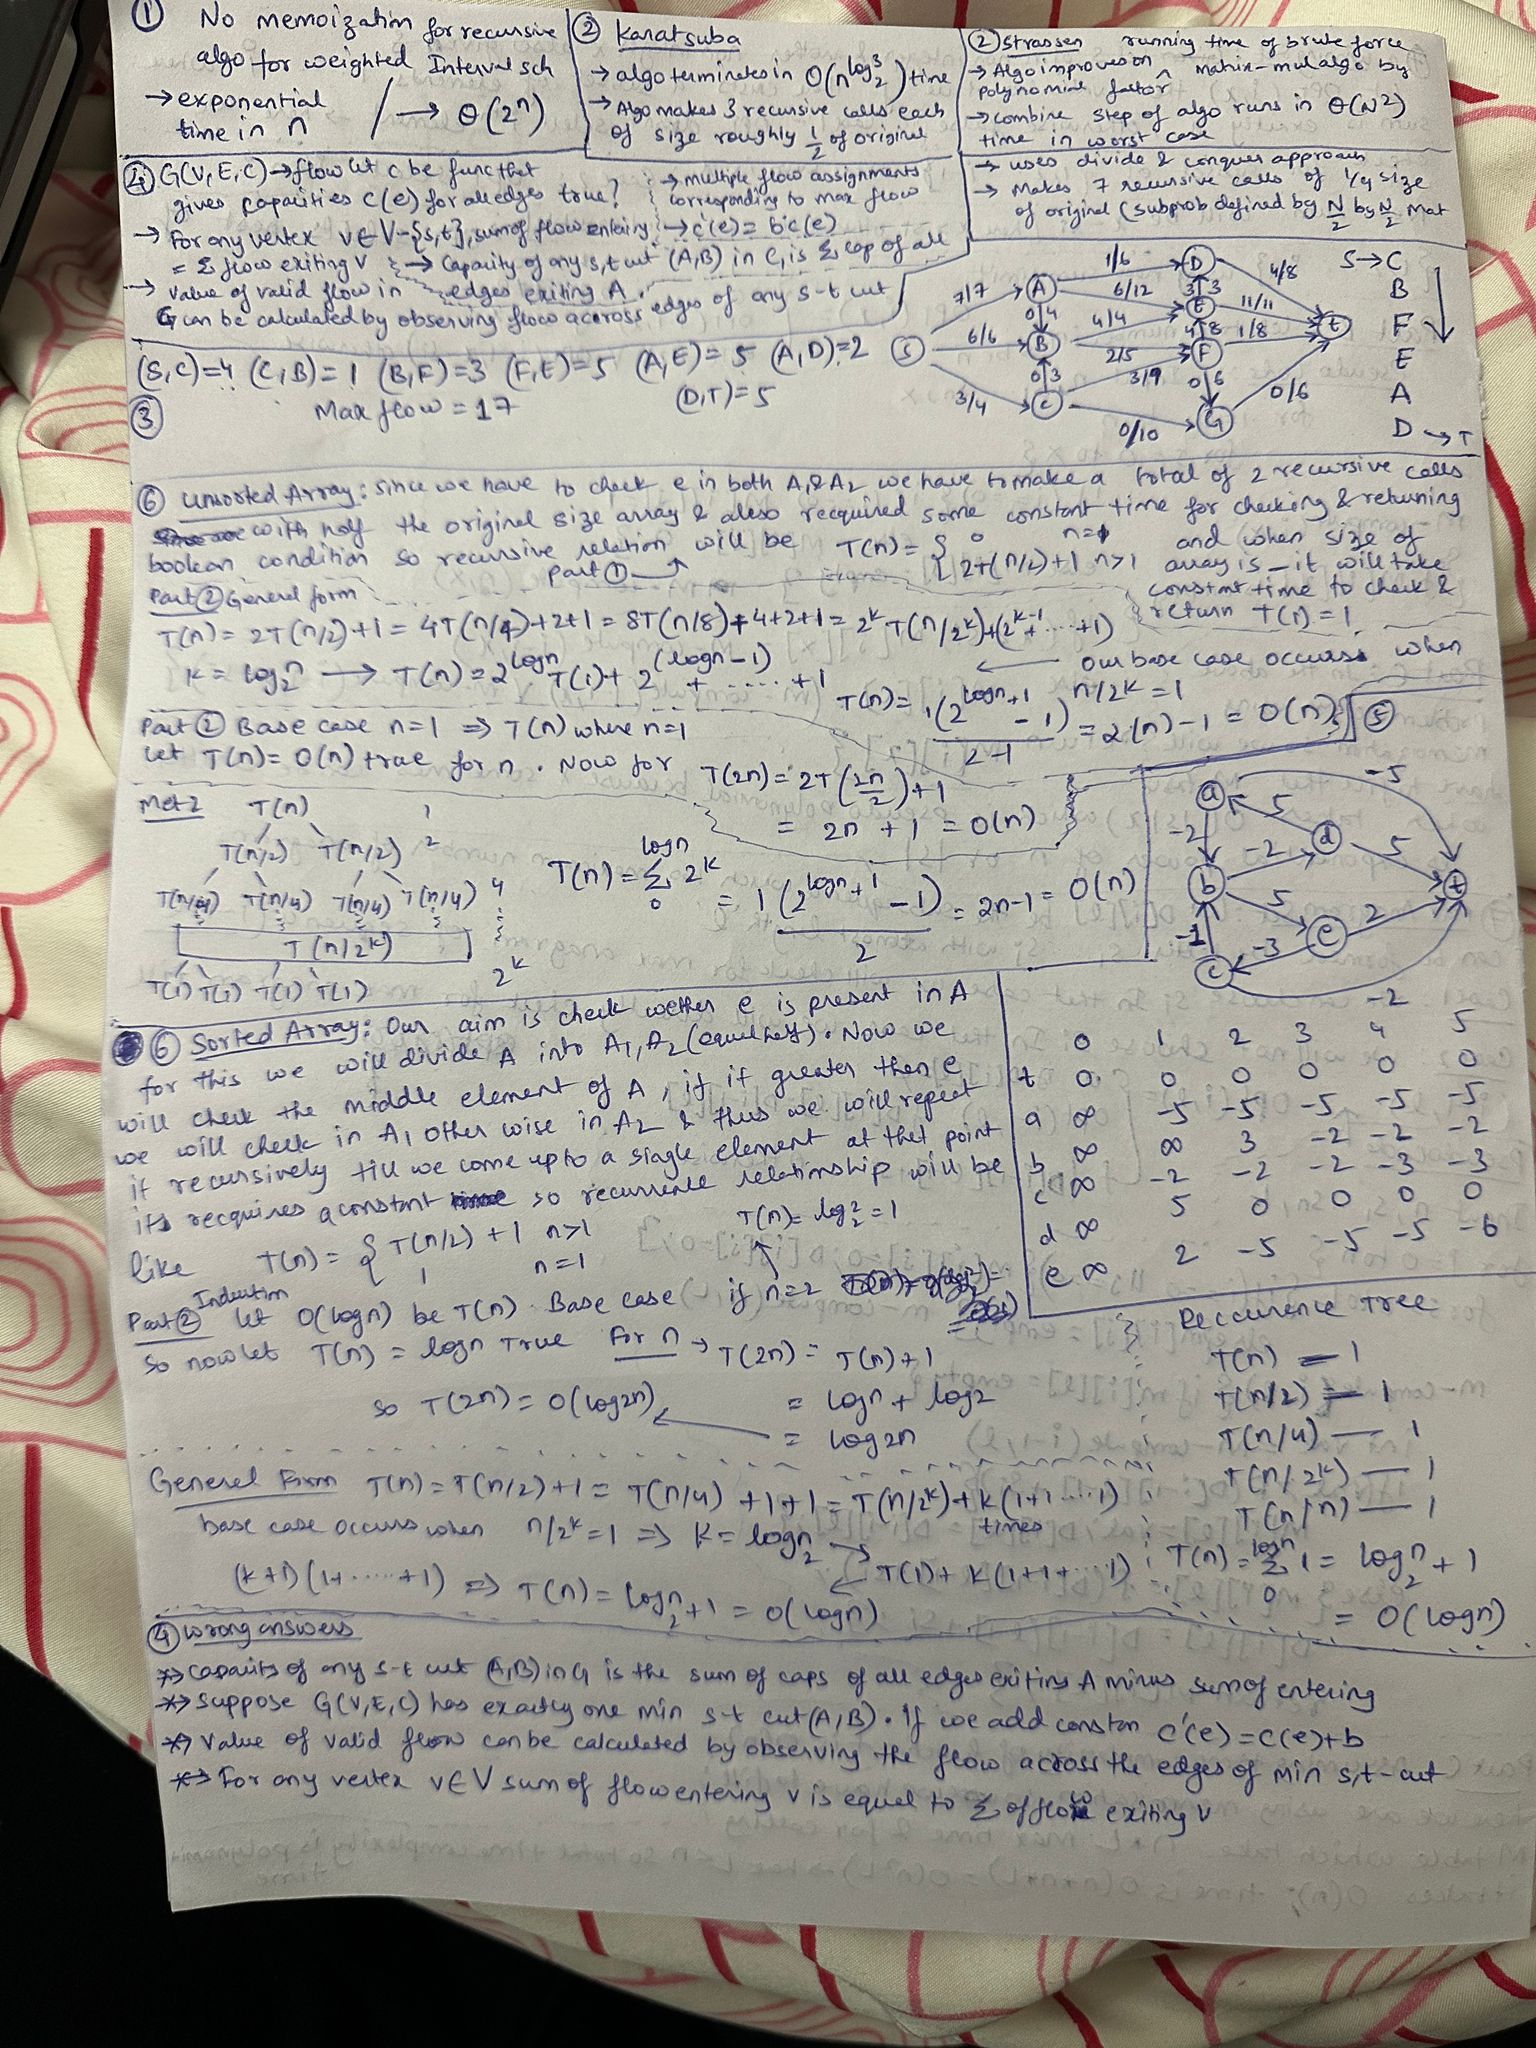 ① No memoization for recursive
algo for weighted Interval sch
→ exponential
time in n / → Θ(2ⁿ)
② Karatsuba
→ algo terminates in O(n^log₂3) time
→ Algo makes 3 recursive calls each
of size roughly 1/2 of original
② Strassen running time of brute force
→ Algo improves on ^ matrix-mul algo by
polynomial factor
→ combine step of algo runs in Θ(N²)
time in worst case
→ uses divide & conquer approach
→ Makes 7 recursive calls of 1/4 size
of original (subprob defined by N/2 by N/2 mat
④ G(V,E,C) → flow let c be func that
gives capacities c(e) for all edges true?
→ For any vertex v∈V-{s,t}, sum of flow entering
= Σ flow exiting v
→ multiple flow assignments
corresponding to max flow
→ c'(e) = b·c(e)
→ Capacity of any s,t cut (A,B) in G, is Σ cap of all
edges exiting A.
→ Value of valid flow in
G can be calculated by observing flow across edges of any s-t cut
(S,C)=4 (C,B)=1 (B,F)=3 (F,E)=5 (A,E)=5 (A,D)=2
③ Max flow = 17 (D,T)=5
S A B C D E F G t
7/7 6/6 3/4 1/6 6/12 0/4 4/4 2/5 0/3 3/9 0/10 3/3 4/8 0/6 4/8 11/11 1/8 0/6
S→C
B
F
E
A
D→T
⑥ Unsorted Array: Since we have to check e in both A₁ & A₂ we have to make a total of 2 recursive calls
with half the original size array & also recquired some constant time for checking & returning
boolean condition so recursive relation will be T(n) = { 0 n=1
2T(n/2)+1 n>1
part ①
and when size of
array is _ it will take
constant time to check &
return T(1) = 1
Part ② General form
T(n) = 2T(n/2)+1 = 4T(n/4)+2+1 = 8T(n/8)+4+2+1 = 2ᵏT(n/2ᵏ)+(2ᵏ⁻¹+ ..... +1)
K = log₂n → T(n) = 2^logn T(1) + 2^(logn-1) + ..... + 1
← our base case occurs when
n/2ᵏ = 1
T(n) = 1(2^(logn+1) - 1)/2-1 = 2(n)-1 = O(n)
Part ② Base case n=1 ⇒ T(n) where n=1
let T(n) = O(n) true for n. Now for T(2n) = 2T(2n/2)+1
= 2n + 1 = O(n)
Met 2 T(n) 1
T(n/2) T(n/2) 2
T(n/4) T(n/4) T(n/4) T(n/4) 4
T(n/2ᵏ)
T(1) T(1) T(1) T(1) 2ᵏ
T(n) = logn Σ 0 2ᵏ = 1(2^(logn+1) - 1)/2 = 2n-1 = O(n)
⑤
a b c d e t
-5 5 -2 -2 5 5 2 -1 -3 -2
0 1 2 3 4 5
t 0 0 0 0 0 0
a ∞ -5 -5 -5 -5 -5
b ∞ ∞ 3 -2 -2 -2
c ∞ -2 -2 -2 -3 -3
d ∞ 5 0 0 0 0
e ∞ 2 -5 -5 -5 -6
⑥ Sorted Array: Our aim is check wether e is present in A
for this we will divide A into A₁, A₂ (equal half). Now we
will check the middle element of A, if it greater then e
we will check in A₁ other wise in A₂ & thus we will repeat
it recursively till we come upto a single element at that point
its recquires a constant so recurrence relationship will be
like T(n) = { T(n/2) + 1 n>1
1 n=1
T(n) = log₂2 = 1
Part ② Induction let O(logn) be T(n). Base case if n=2
So now let T(n) = logn True For n → T(2n) = T(n)+1
= logn + log2
= log2n
so T(2n) = O(log2n)
Reccurence Tree
T(n) — 1
T(n/2) — 1
T(n/4) — 1
T(n/2ᵏ) — 1
T(n/n) — 1
T(n) = logn Σ 0 1 = log₂n + 1
= O(logn)
General Form T(n) = T(n/2)+1 = T(n/4)+1+1 = T(n/2ᵏ)+K(1+1.....1)
times
base case occurs when n/2ᵏ=1 ⇒ K = log₂n → T(1)+K(1+1+...1)
(k+1)(1+.....+1) ⇒ T(n) = log₂n+1 = O(logn)
④ wrong answers
*→ capacity of any s-t cut (A,B) in G is the sum of caps of all edges exiting A minus sum of entering
*→ Suppose G(V,E,C) has exactly one min s-t cut (A,B). If we add constan c'(e) = c(e)+b
*→ Value of valid flow can be calculated by observing the flow across the edges of min s,t-cut
*→ For any vertex v∈V sum of flow entering v is equal to Σ of flow exiting v